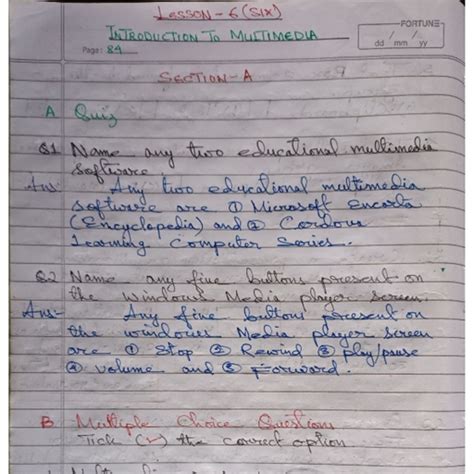 LESSON - 6 (SIX)
FORTUNE
INTRODUCTION TO MULTIMEDIA
Page: 84
dd mm yy
SECTION-A
A Quiz
Q1 Name any two educational multimedia
software.
Ans: Any two educational multimedia
software are ① Microsoft Encarta
(Encyclopedia) and ②
Learning Computer Series.
Q2 Name any five buttons present on
the windows Media player screen.
Ans:- Any five buttons present on
the windows Media player screen
are ① Stop ② Rewind ③ play/pause
④ volume and ⑤ Forward.
B Multiple Choice Questions
Tick (✓) the correct option.